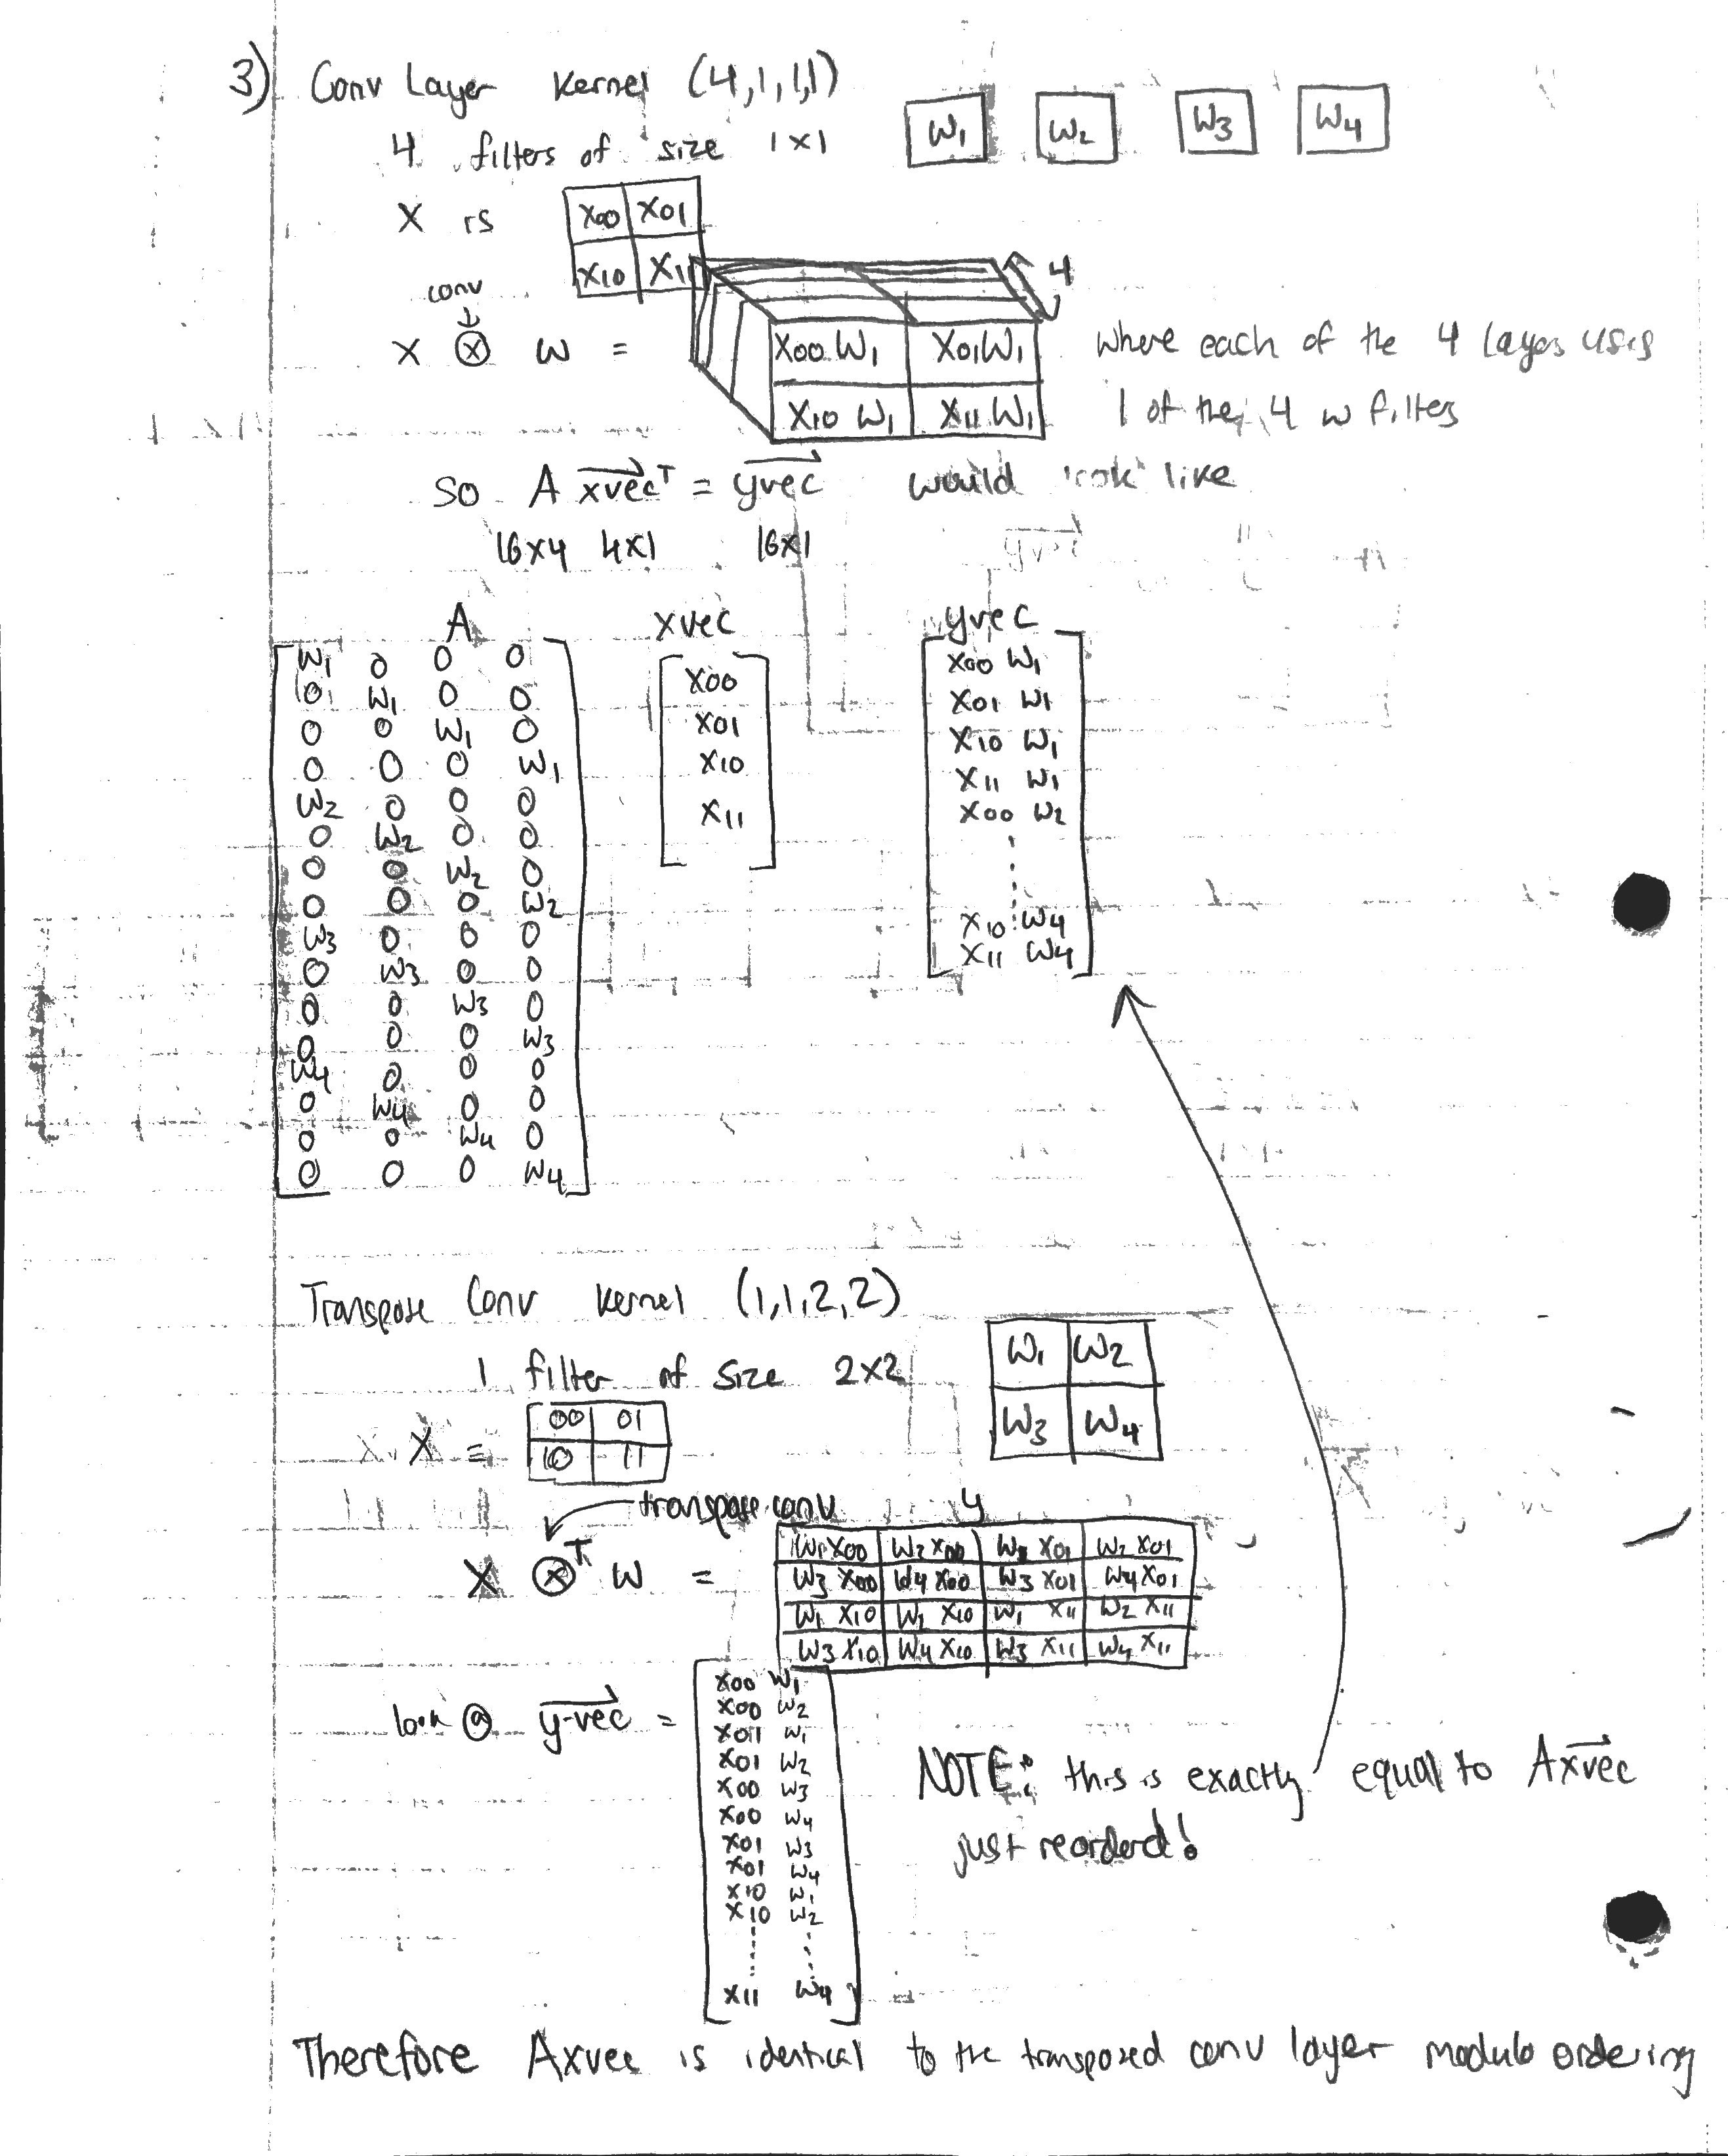 3) Conv Layer Kernel (4,1,1,1)
4 filters of size 1x1
W1 W2 W3 W4
X is
X00 X01
X10 X11
conv
4
X ⊗ W =
X00 W1 X01 W1
X10 W1 X11 W1
where each of the 4 layers uses
1 of the 4 w filters
So A xvecᵀ = yvec would look like
16x4 4x1 16x1
A xvec yvec
W1 0 0 0
0 W1 0 0
0 0 W1 0
0 0 0 W1
W2 0 0 0
0 W2 0 0
0 0 W2 0
0 0 0 W2
W3 0 0 0
0 W3 0 0
0 0 W3 0
0 0 0 W3
W4 0 0 0
0 W4 0 0
0 0 W4 0
0 0 0 W4
X00
X01
X10
X11
X00 W1
X01 W1
X10 W1
X11 W1
X00 W2
X10 W4
X11 W4
Transpose Conv Kernel (1,1,2,2)
1 filter of size 2x2
W1 W2
W3 W4
X =
00 01
10 11
transpose conv
y
X ⊗ᵀ W =
W1 X00 W2 X00 X01 W2 X01
W3 X00 W4 X00 W3 X01 W4 X01
W1 X10 X10 W1 X11 W2 X11
W3 X10 W4 X10 W3 X11 W4 X11
look @ y-vec =
X00 W1
X00 W2
X01 W1
X01 W2
X00 W3
X00 W4
X01 W3
X01 W4
X10 W1
X10 W2
X11 W4
NOTE: this is exactly equal to Axvec
just reordered!
Therefore Axvec is identical to the transposed conv layer modulo ordering